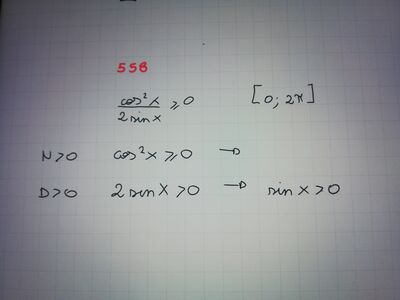 558
cos²x / 2 sin x ⩾ 0 [0; 2π]
N>0 cos²x ⩾ 0 →
D>0 2 sin x > 0 → sin x > 0